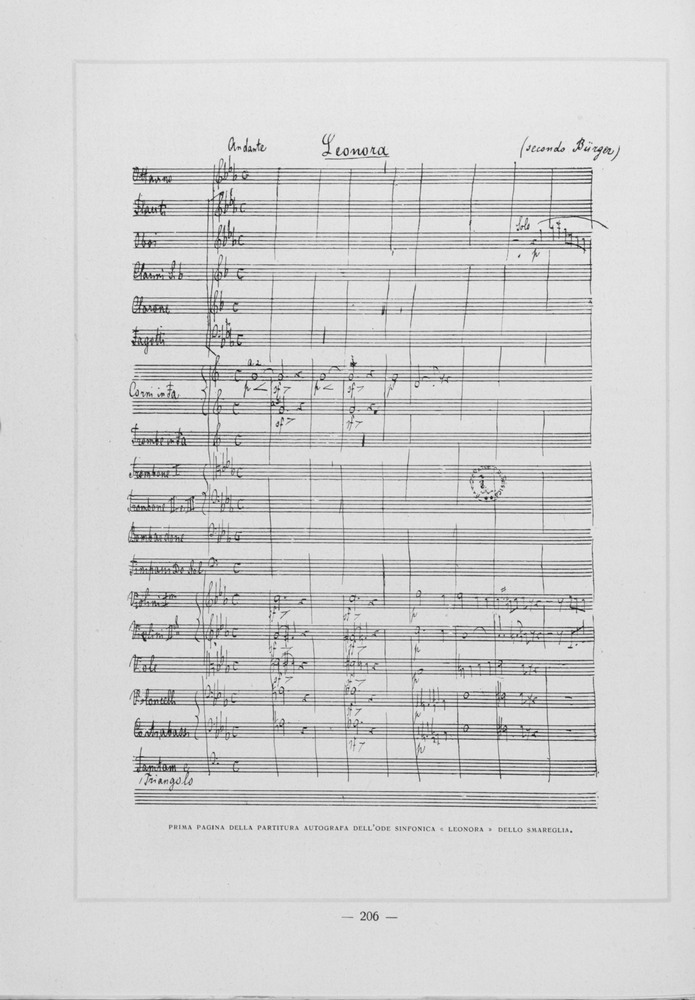 Andante Leonora (secondo Bürger)
Ottavino
Flauti
Oboi
Solo
p
Clarini Si b
Clarone
Fagotti
a 2.
p sf p sf p
Corni in Fa
sf sf
Trombe in Fa
Trombone I
Tromboni II e III
Bombardone
Timpani Do Sol
Violini Imi
sf sf p
Violini IIdi
sf sf p
Viole
sf sf p
Violoncelli
sf p
Contrabassi
sf p
Tamtam e
Triangolo
PRIMA PAGINA DELLA PARTITURA AUTOGRAFA DELL'ODE SINFONICA « LEONORA » DELLO SMAREGLIA.
— 206 —